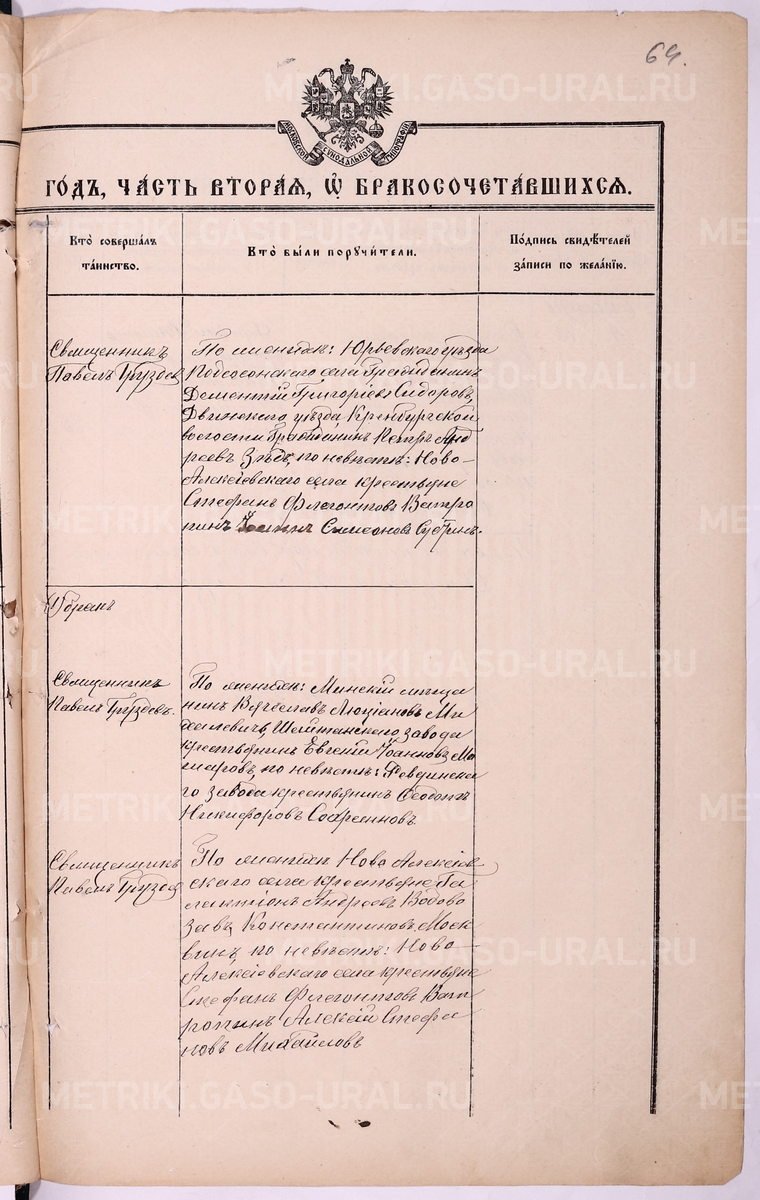 64.
МОСКОВСКОЙ СѴНОДАЛЬНОЙ ТИПОГРАФІИ
ГО́ДЪ, ЧА́СТЬ ВТОРА́Я, Ѡ҆ БРАКОСОЧЕТА́ВШИХСЯ.
Кто̀ соверша́лъ
та́инство.
Кто̀ бы́ли поручи́тели.
По́дпись свидѣ́телей
за́писи по жела́нїю.
Священникъ
Павелъ Груздев
По женихѣ: Юрьевского уѣзда
Подсосонскаго села Гражданинъ
Дементій Григоріевъ Сидоровъ,
Двинскаго уѣзда, Кренбургской
волости Гражданинъ Петръ Анд
реевъ по невѣстѣ: Ново-
Алексѣевскаго села крестьяне
Стефанъ Флегонтовъ Ватро
пинъ Симеоновъ
Священникъ
Павелъ Груздевъ.
По женихѣ: Минскій мѣща
нинъ Вячеславъ Люціановъ Ми
Шайтанскаго завода
крестьянинъ Евгеній Іоанновъ Ма
каровъ, по невѣстѣ: Ревдинска
го завода крестьянинъ Ѳеодотъ
Никифоровъ
Священникъ
Павелъ Груздев
По женихѣ Ново Алексѣев
скаго села крестьяне Га
лактіонъ Андреевъ Водово
зовъ Константиновъ Моск
винъ, по невѣстѣ: Ново-
Алексѣевскаго села крестьяне
Стефанъ Флегонтовъ Ват
ропинъ Алексѣй Стефа
новъ Михайловъ
METRIKI.GASO-URAL.RU